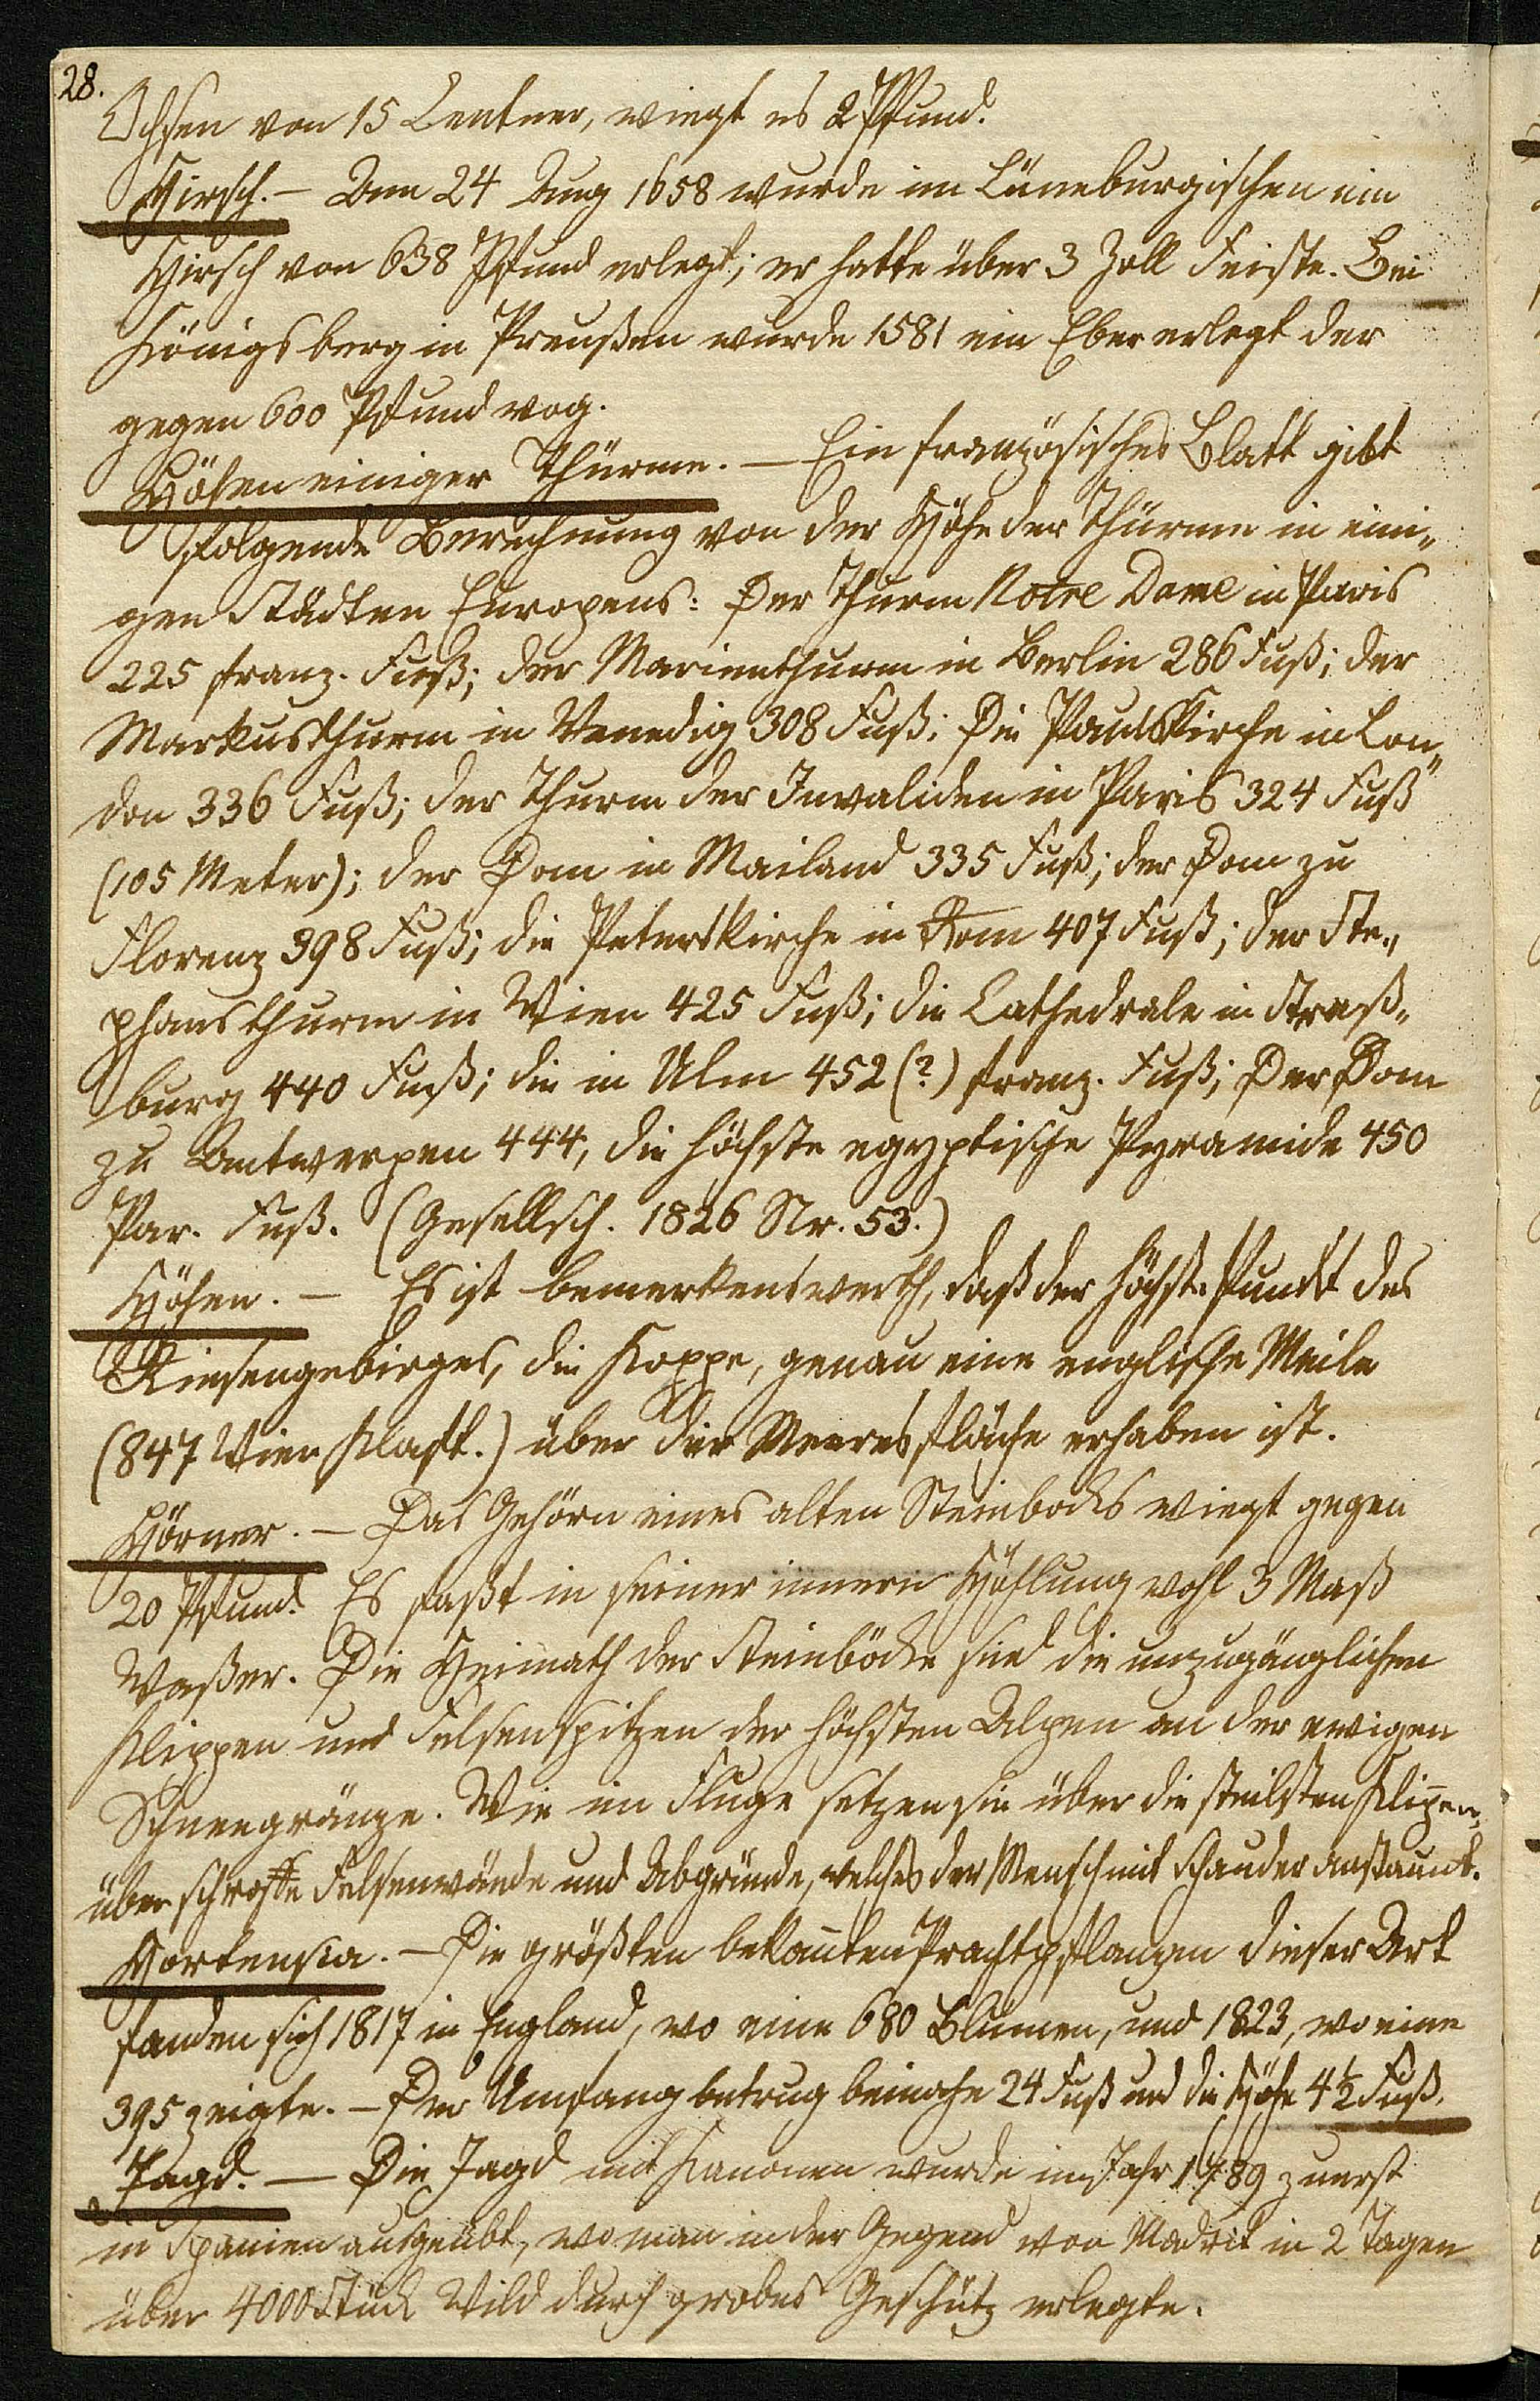 28.
Ochsen von 15 Centner, wiegt es 2 Pfund.
Hirsch. – Den 24 Aug 1658 wurde im Lüneburgischen ein
Hirsch von 638 Pfund erlegt; er hatte über 3 Zoll Feiste. Bei
Königsberg in Preußen wurde 1581 ein Eber erlegt der
gegen 600 Pfund wog.
Höhen einiger Thürme. – Ein französisches Blatt gibt
folgende Berechnung von der Höhe der Thürme in eini„
gen Städten Europens: Der Thurm Notre Dame in Paris
225 franz. Fuß; der Marienthurm in Berlin 286 Fuß; der
Markusthurm in Venedig 308 Fuß; Die Paulskirche in Lon„
don 336 Fuß; der Thurm der Invaliden in Paris 324 Fuß
(105 Meter); der Dom in Mailand 335 Fuß; der Dom zu
Florenz 398 Fuß; die Peterskirche in Rom 407 Fuß; der Ste„
phansthurm in Wien 425 Fuß; die Cathedrale in Straß„
burg 440 Fuß; die in Ulm 452 (?) franz. Fuß; Der Dom
zu Antwerpen 444, die höchste egyptische Pyramide 450
Par. Fuß. (Gesellsch. 1826 Nr. 53.)
Höhen. – Es ist bemerkenswerth, daß der höchste Punkt des
Riesengebirges, die Koppe, genau eine englische Meile
(847 Wien Klaft.) über der Meeresfläche erhaben ist.
Hörner. – Das Gehörn eines alten Steinbocks wiegt gegen
20 Pfund. Es faßt in seiner innern Höhlung wohl 3 Maß
Waßer. Die Heimath der Steinböcke sind die unzugänglichen
Klippen und Felsenspitzen der höchsten Alpen an der ewigen
Schneegränze. Wie im Fluge setzen sie über die steilsten Klip̄en,
über schroffe Felsenwände und Abgründe, welches der Mensch mit Schauder anstaunt.
Hortensia. – Die größten bekan̄ten Prachtpflanzen dieser Art
fanden sich 1817 in England, wo eine 680 Blumen, und 1823, wo eine
395 zeigte. – Der Umfang betrug beinahe 24 Fuß und die Höhe 4½ Fuß.
Jagd. – Die Jagd mit Kanonen wurde im Jahr 1789 zuerst
in Spanien ausgeübt, wo man in der Gegend von Madrit in 2 Tagen
über 4000 Stück Wild durch grobes Geschütz erlegte.